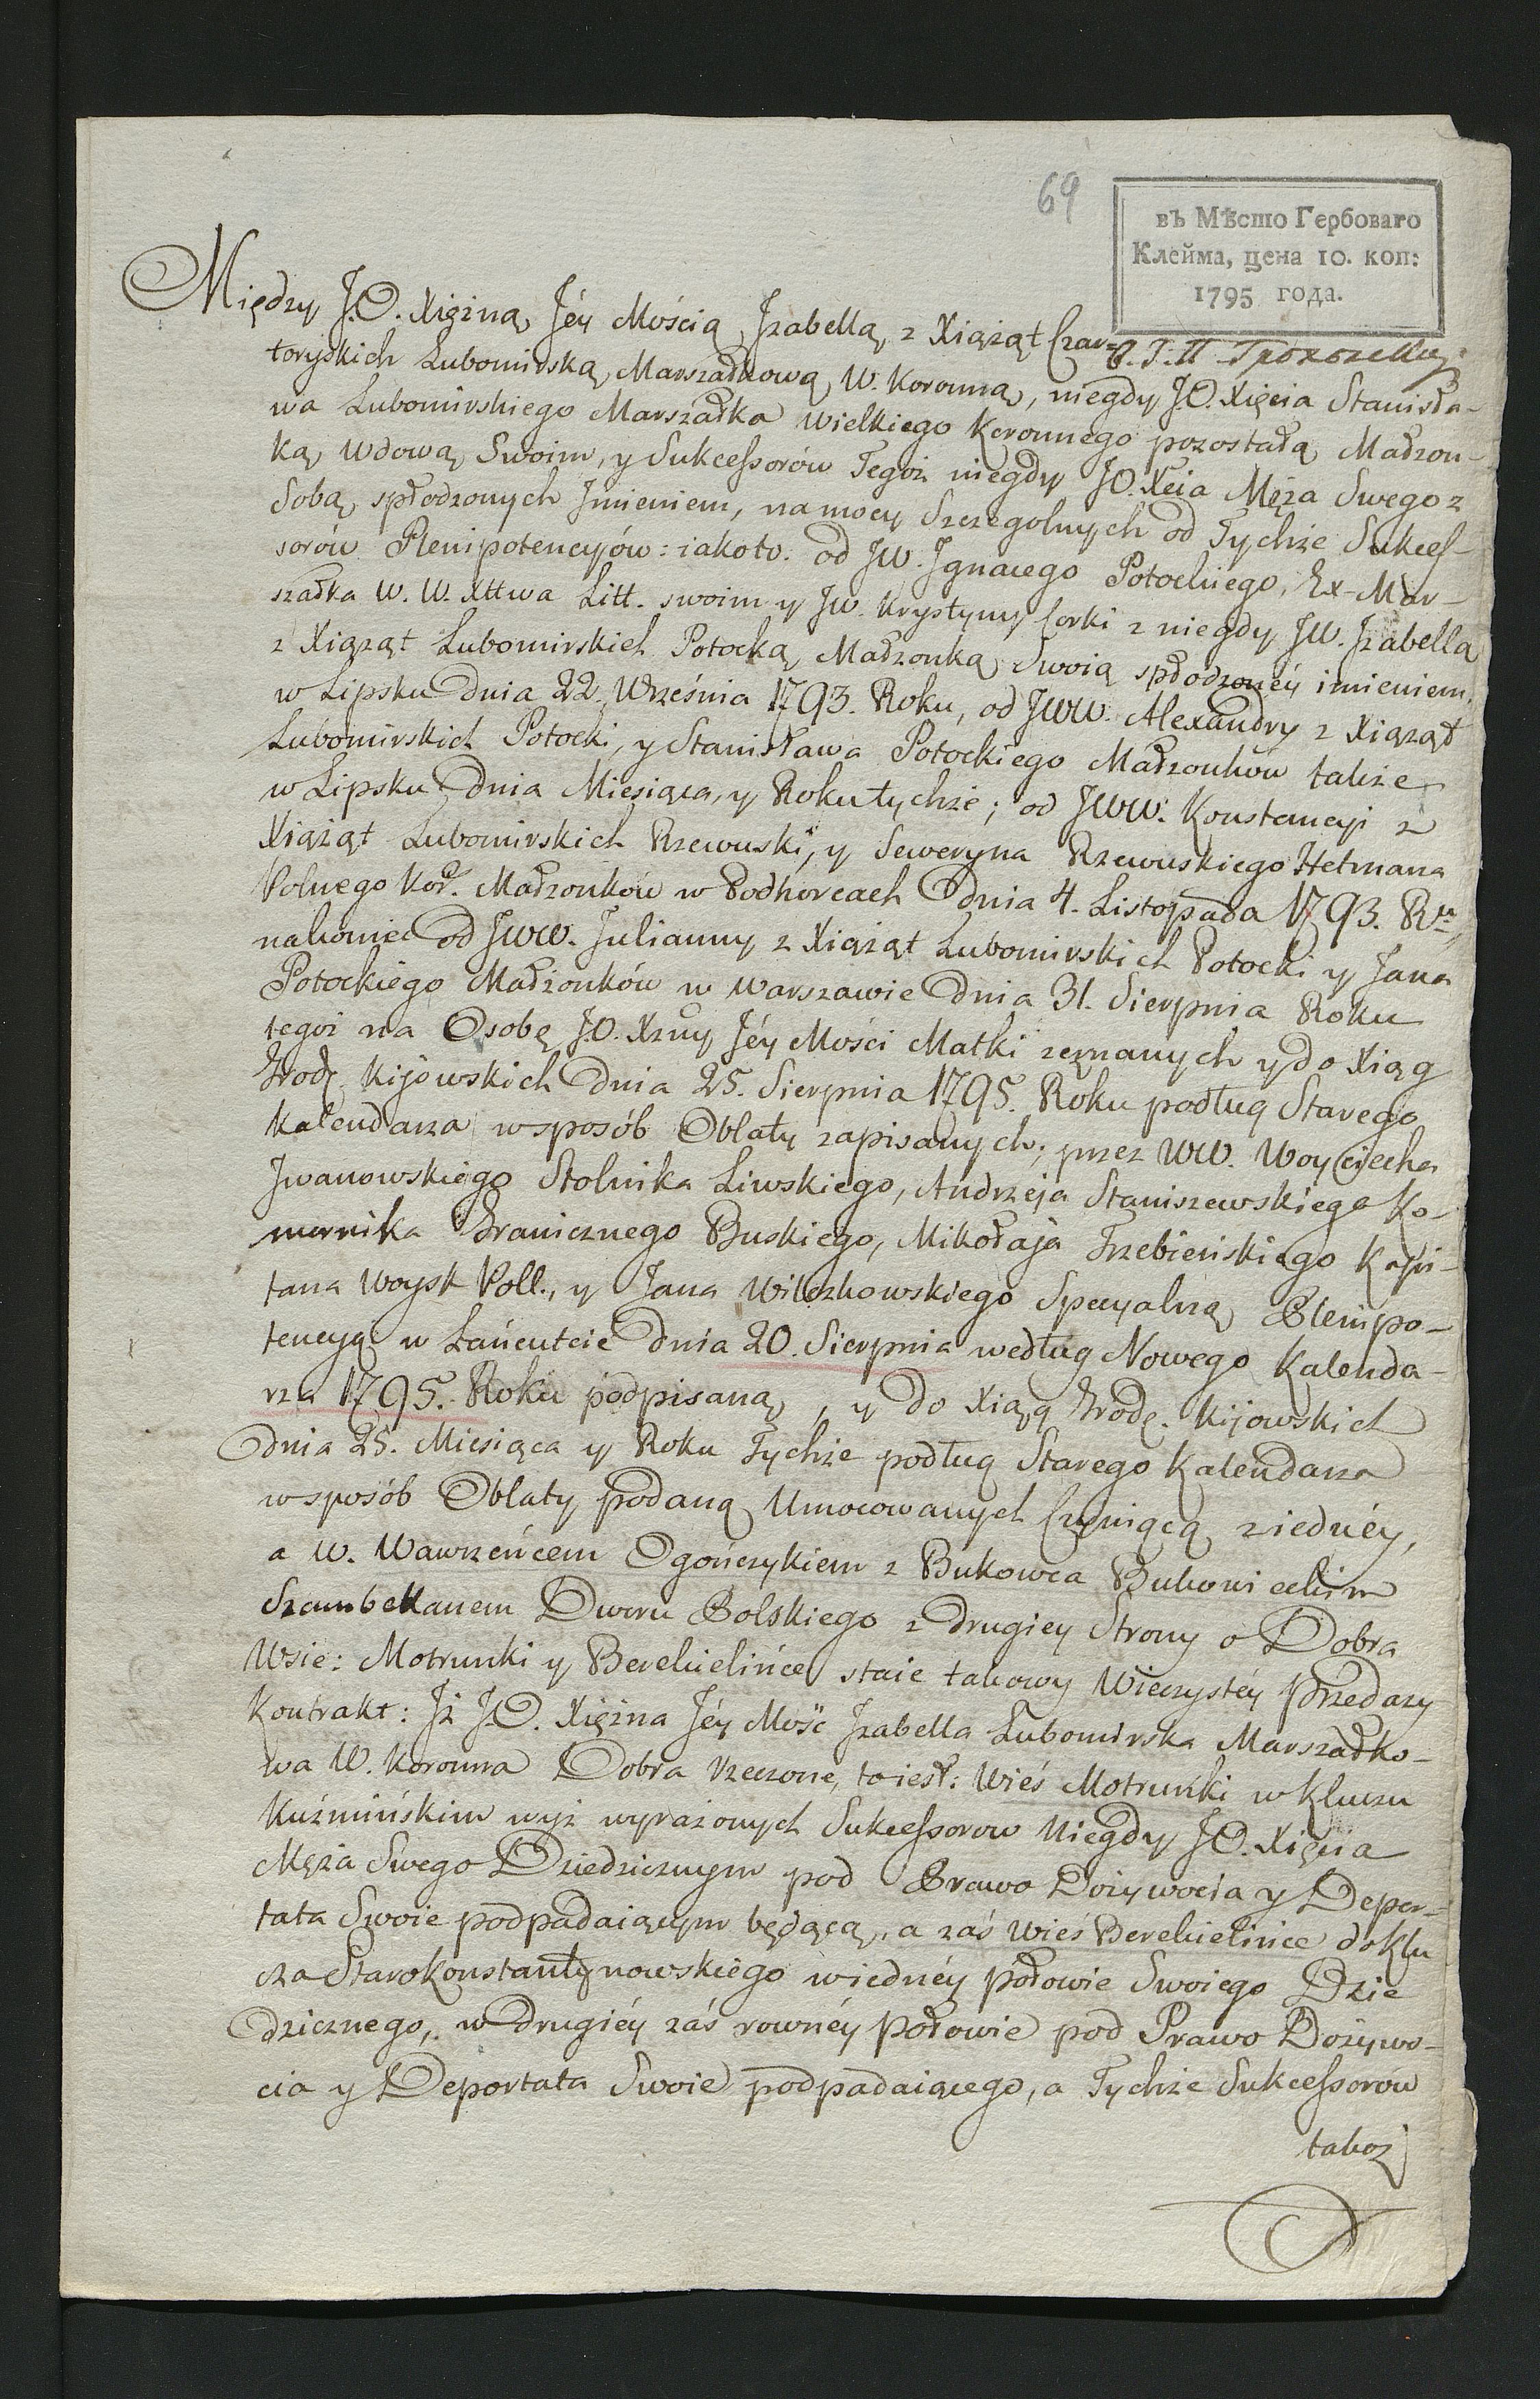 69
въ Мѣсто Гербоваго
Клейма, цена 10. коп:
1795 года.
Między J.O. Xiężną Jéy Mościa Jzabellą, z Xiążąt Czar=
toryskich Lubomirską, Marszałkową W. Koronną, niegdy J.O. Xięcia Stanisła-
wa Lubomirskiego Marszałka Wielkiego Koronnego pozostałą Małżon-
ką Wdową Swoim, y Sukcessorów Tegoż niegdy JO. Xcia Męża Swego z
Sobą spłodzonych Jmieniem, na mocy Szczegolnych od Tychże Sukces-
sorów Plenipotencyów: iakoto. od JW. Jgnacego Potockiego, Ex-Mar-
szałka W. W. Xttwa Litt. swoim y JW. Krystyny Corki z niegdy JW. Jzabellą
z Xiążąt Lubomirskich Potocką Małżonką Swoią spłodzonéy imieniem,
w Lipsku Dnia 22. Września 1793. Roku, od JWW. Alexandry z Xiążąt
Lubomirskich Potocki, y Stanisława Potockiego Małżonków także
w Lipsku Dnia Miesiąca, y Roku tychże; od JWW. Konstancyi z
Xiążąt Lubomirskich Rzewuski, y Seweryna Rzewuskiego Hetmana
Polnego Kor. Małżonków w Podhorcach Dnia 4. Listopada 1793. Ru,
nakoniec od JWW. Julianny z Xiążąt Lubomirskich Potocki y Jana
Potockiego Małżonków w Warszawie Dnia 31. Sierpnia Roku
tegoż na Osobę J.O. Xzny Jéy Mości Matki zeznanych y do Xiąg
Grodz. Kijowskich Dnia 25. Sierpnia 1795. Roku podług Starego
Kalendarza wsposób Oblaty zapisanych; przez WW. Woyciecha
Jwanowskiego Stolnika Liwskiego, Andrzeja Staniszewskiego Ko-
mornika Granicznego Buskiego, Mikołaja Trzebieńskiego Kapi-
tana Woysk Poll., y Jana Wilczkowskiego Specyalną Plenipo-
tencyą w Łańcutcie Dnia 20. Sierpnia według Nowego Kalenda-
rza 1795. Roku podpisaną, y do Xiąg Grodz. Kijowskich
Dnia 25. Miesiąca y Roku Tychże podług Starego Kalendarza
wsposób Oblaty podaną Umocowanych Czyniącą ziednéy,
a W. Wawrzeńcem Ogończykiem z Bukowca Bukowieckim
Szambellanem Dworu Polskiego z Drugiey Strony o Dobra
Wsie: Motrunki y Berehelińce staie takowy Wieczystéy przedaży
Kontrakt: Jż J.O. Xiężna Jéy Mość Jzabella Lubomirska Marszałko-
wa W. Koronna Dobra rzeczone, toiest: Wieś Motrunki w Kluczu
Kuźmińskim wyż wyrażonych Sukcessorow Niegdy J.O. Xięcia
Męża Swego Dziedzicznym pod Prawo Dożywocia y Depor-
tata Swoie podpadaiącym będącą, a zaś Wieś Berehelińce do Klu
cza Starokonstantynowskiego wiednéy połowie Swoiego Dzie
dzicznego, w drugiéy zaś rownéy połowie pod Prawo Dożywo-
cia y Deportata Swoie podpadaiącego, a Tychże Sukcessorów
takoż